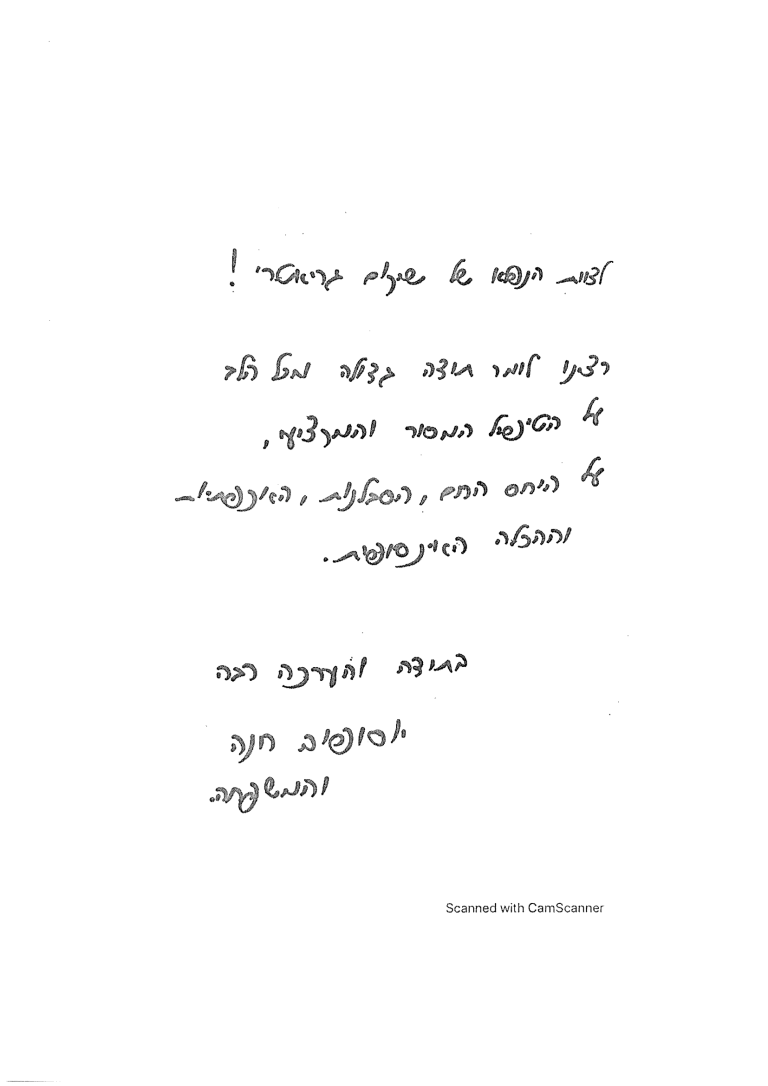 לצוות הנפלא של שיקום גריאטרי !
רצינו לומר תודה גדולה ומכל הלב
על הטיפול המסור והמקצועי,
על היחס החם, הסבלנות, האכפתיות
וההכלה האינסופית.
בתודה והערכה רבה
יוסופוב חנה
והמשפחה.
Scanned with CamScanner